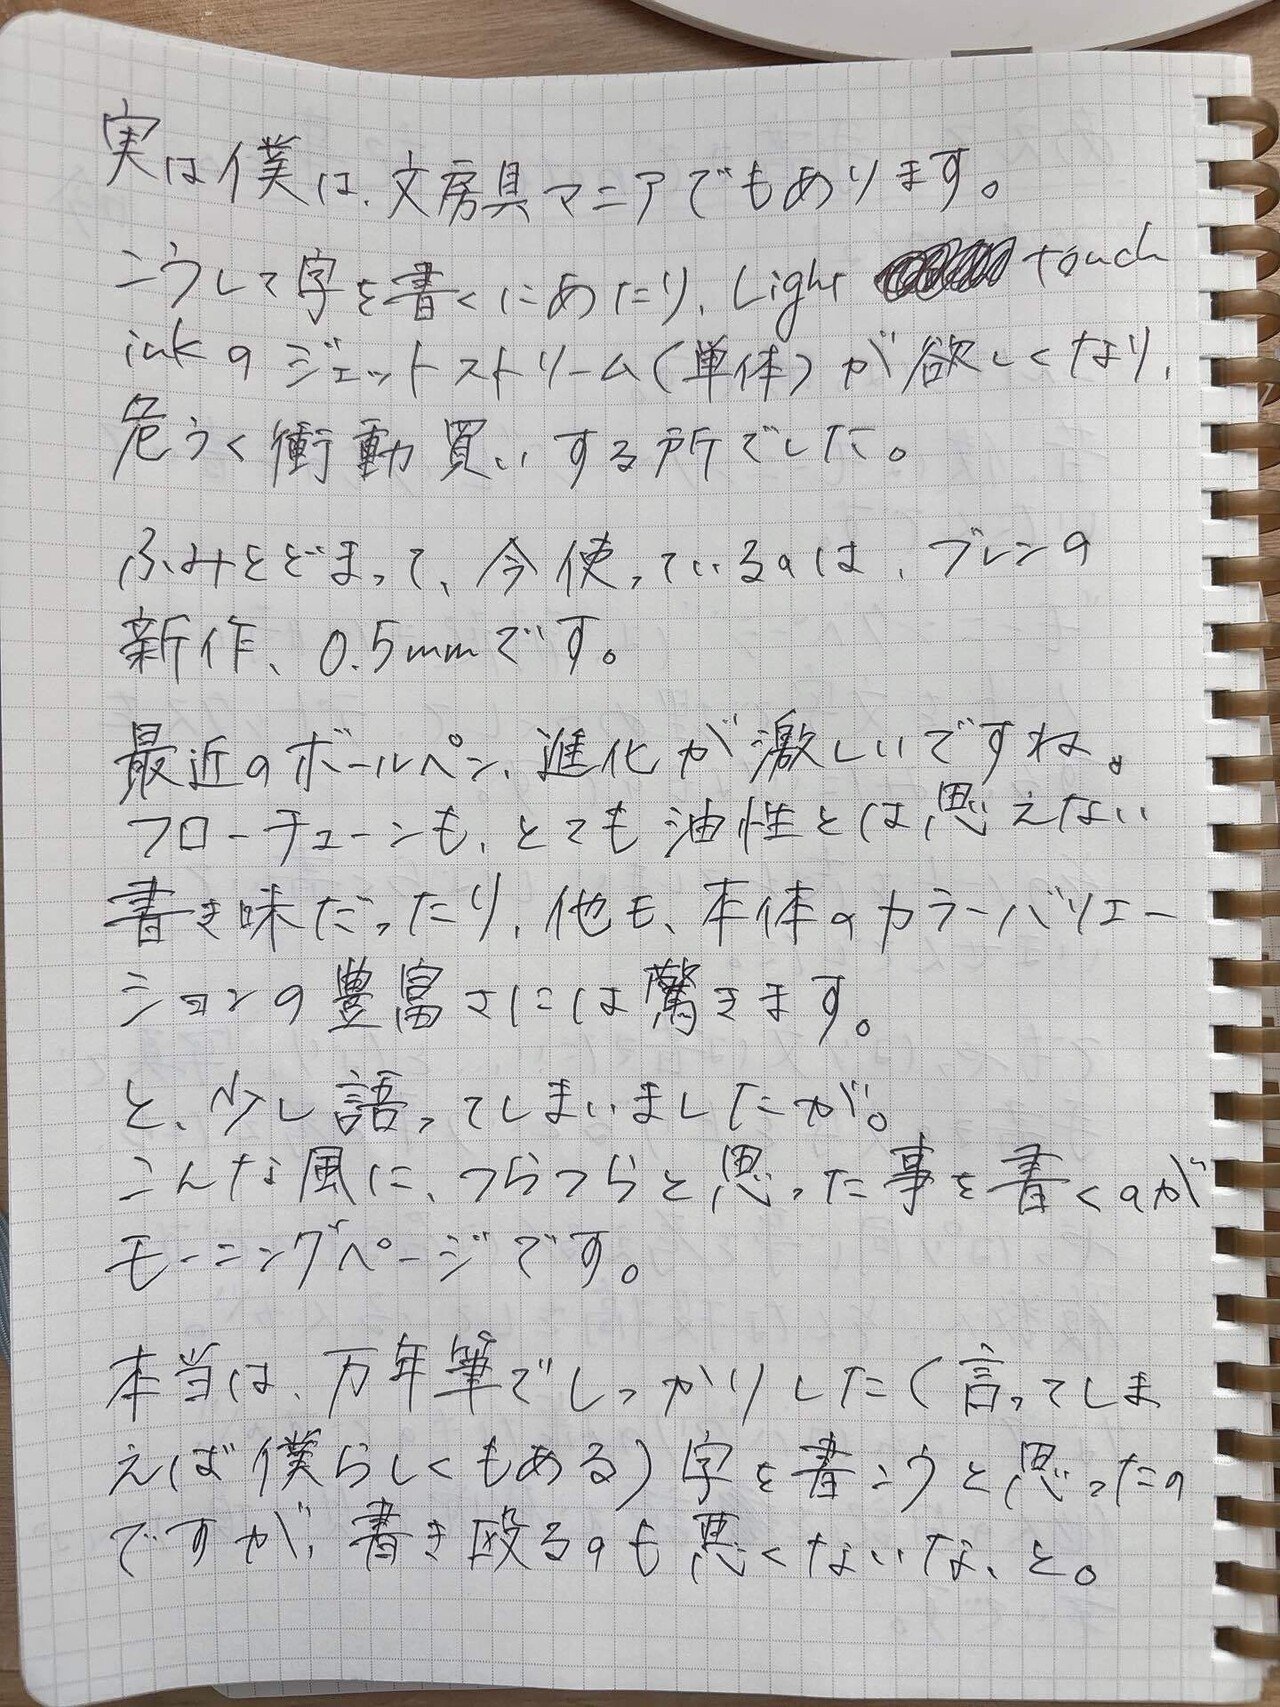 実は僕は、文房具マニアでもあります。
こうして字を書くにあたり、Light touch
inkのジェットストリーム(単体)が欲しくなり、
危うく衝動買いする所でした。
ふみとどまって、今使っているのは、ブレンの
新作、0.5mmです。
最近のボールペン、進化が激しいですね。
フローチューンも、とても油性とは思えない
書き味だったり、他も、本体のカラーバリエー
ションの豊富さには驚きます。
と、少し語ってしまいましたが。
こんな風に、つらつらと思った事を書くのが
モーニングページです。
本当は、万年筆でしっかりした(言ってしま
えば僕らしくもある)字を書こうと思ったの
ですが、書き殴るのも悪くないな、と。